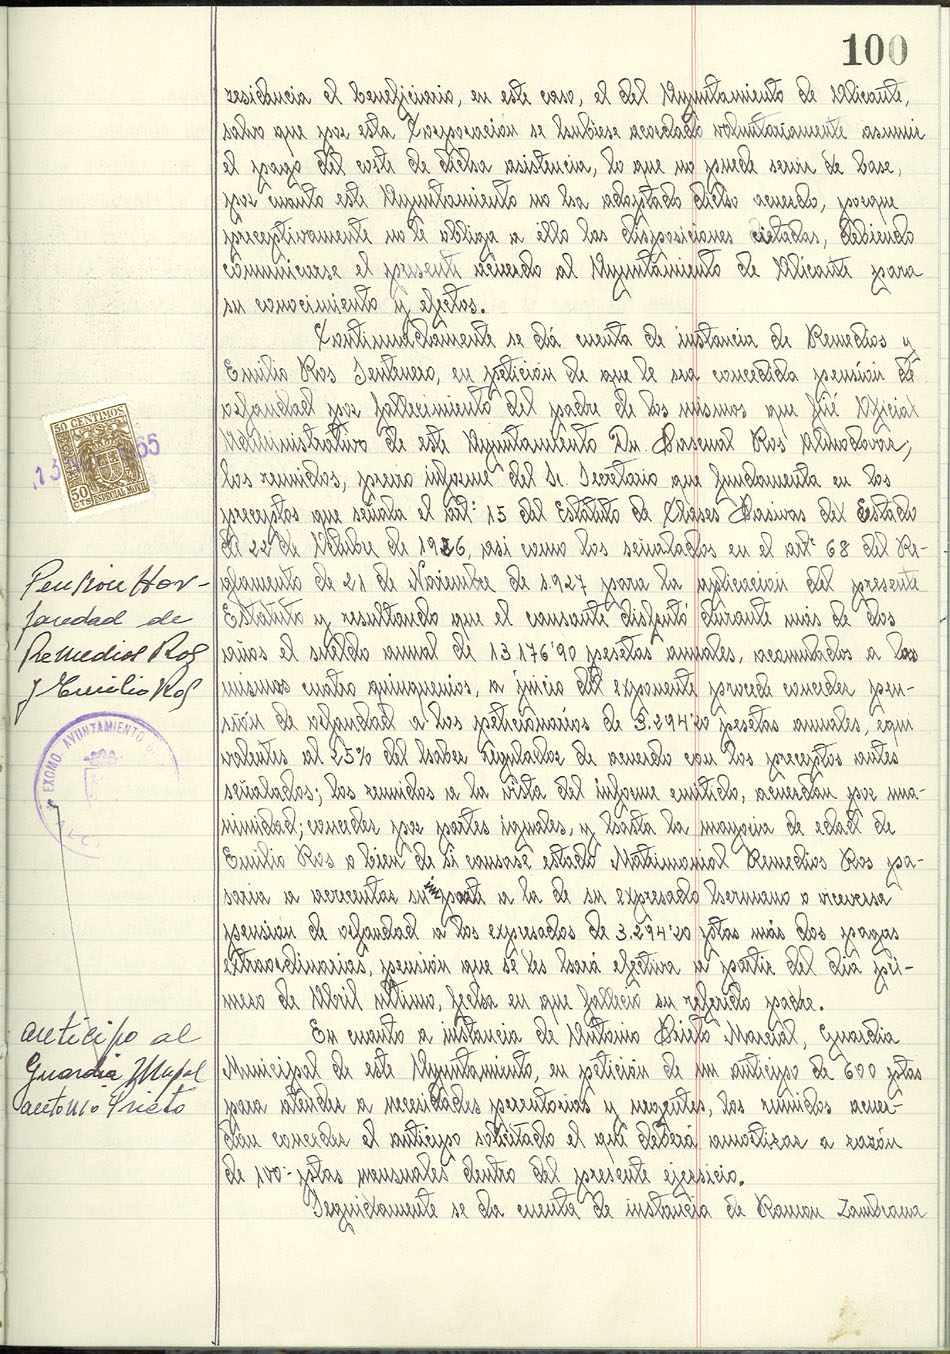 100
residencia el beneficiario, en este caso, el del Ayuntamiento de Alicante,
salvo que por esta Corporación se hubiese acordado voluntariamente asumir
el pago del coste de dicha asistencia, lo que no puede servir de base,
por cuanto este Ayuntamiento no ha adoptado dicho acuerdo, porque
preceptivamente no le obliga a ello las disposiciones citadas, debiendo
comunicarse el presente acuerdo al Ayuntamiento de Alicante para
su conocimiento y efectos.
Continuadamente se dá cuenta de instancia de Remedios y
Emilio Ros Sentenero, en petición de que le sea concedida pensión de
orfandad por fallecimiento del padre de los mismos que fué Oficial
Administrativo de este Ayuntamiento Dn. Pascual Ros Almodovar,
los reunidos, previo informe del Sr. Secretario que fundamenta en los
preceptos que señala el artº 15 del Estatuto de Clases Pasivas del Estado
de 22 de Octubre de 1926, asi como los señalados en el artº 68 del Re-
glamento de 21 de Noviembre de 1.927 para la aplicacion del presente
Estatuto y resultando que el causante disfrutó durante más de dos
años el sueldo anual de 13.176'90 pesetas anuales, acumulados a los
mismos cuatro quinquenios, a juicio del exponente procede conceder pen-
sión de orfandad a los peticionarios de 3.294'20 pesetas anuales, equi
valentes al 25% del haber regulador de acuerdo con los preceptos antes
señalados; los reunidos a la vista del informe emitido, acuerdan por una-
nimidad; conceder por partes iguales, y hasta la mayoria de edad de
Emilio Ros o bien de si causase estado Matrimonial Remedios Ros pa-
saria a acrecentar su importe a la de su expresado hermano o viceversa
pension de orfandad a los expresados de 3.294'20 ptas más dos pagas
extraordinarias, pensión que se les hará efectiva a partir del dia pri-
mero de Abril último, fecha en que falleció su referido padre.
En cuanto a instancia de Antonio Prieto Marcial, Guardia
Municipal de este Ayuntamiento, en petición de un anticipo de 600 ptas
para atender a necesidades perentorias y urgentes, los reunidos acuer-
dan conceder el anticipo solicitado el que deberá amortizar a razón
de 100'- ptas mensuales dentro del presente ejercicio.
Seguidamente se da cuenta de instancia de Ramon Zambrana
50 CENTIMOS
50
CTS
ESPECIAL MOVIL
13
65
Pensión Hor-
fandad de
Remedios Ros
y Emilio Ros
EXCMO. AYUNTAMIENTO
anticipo al
Guardia Mpal
antonio Prieto